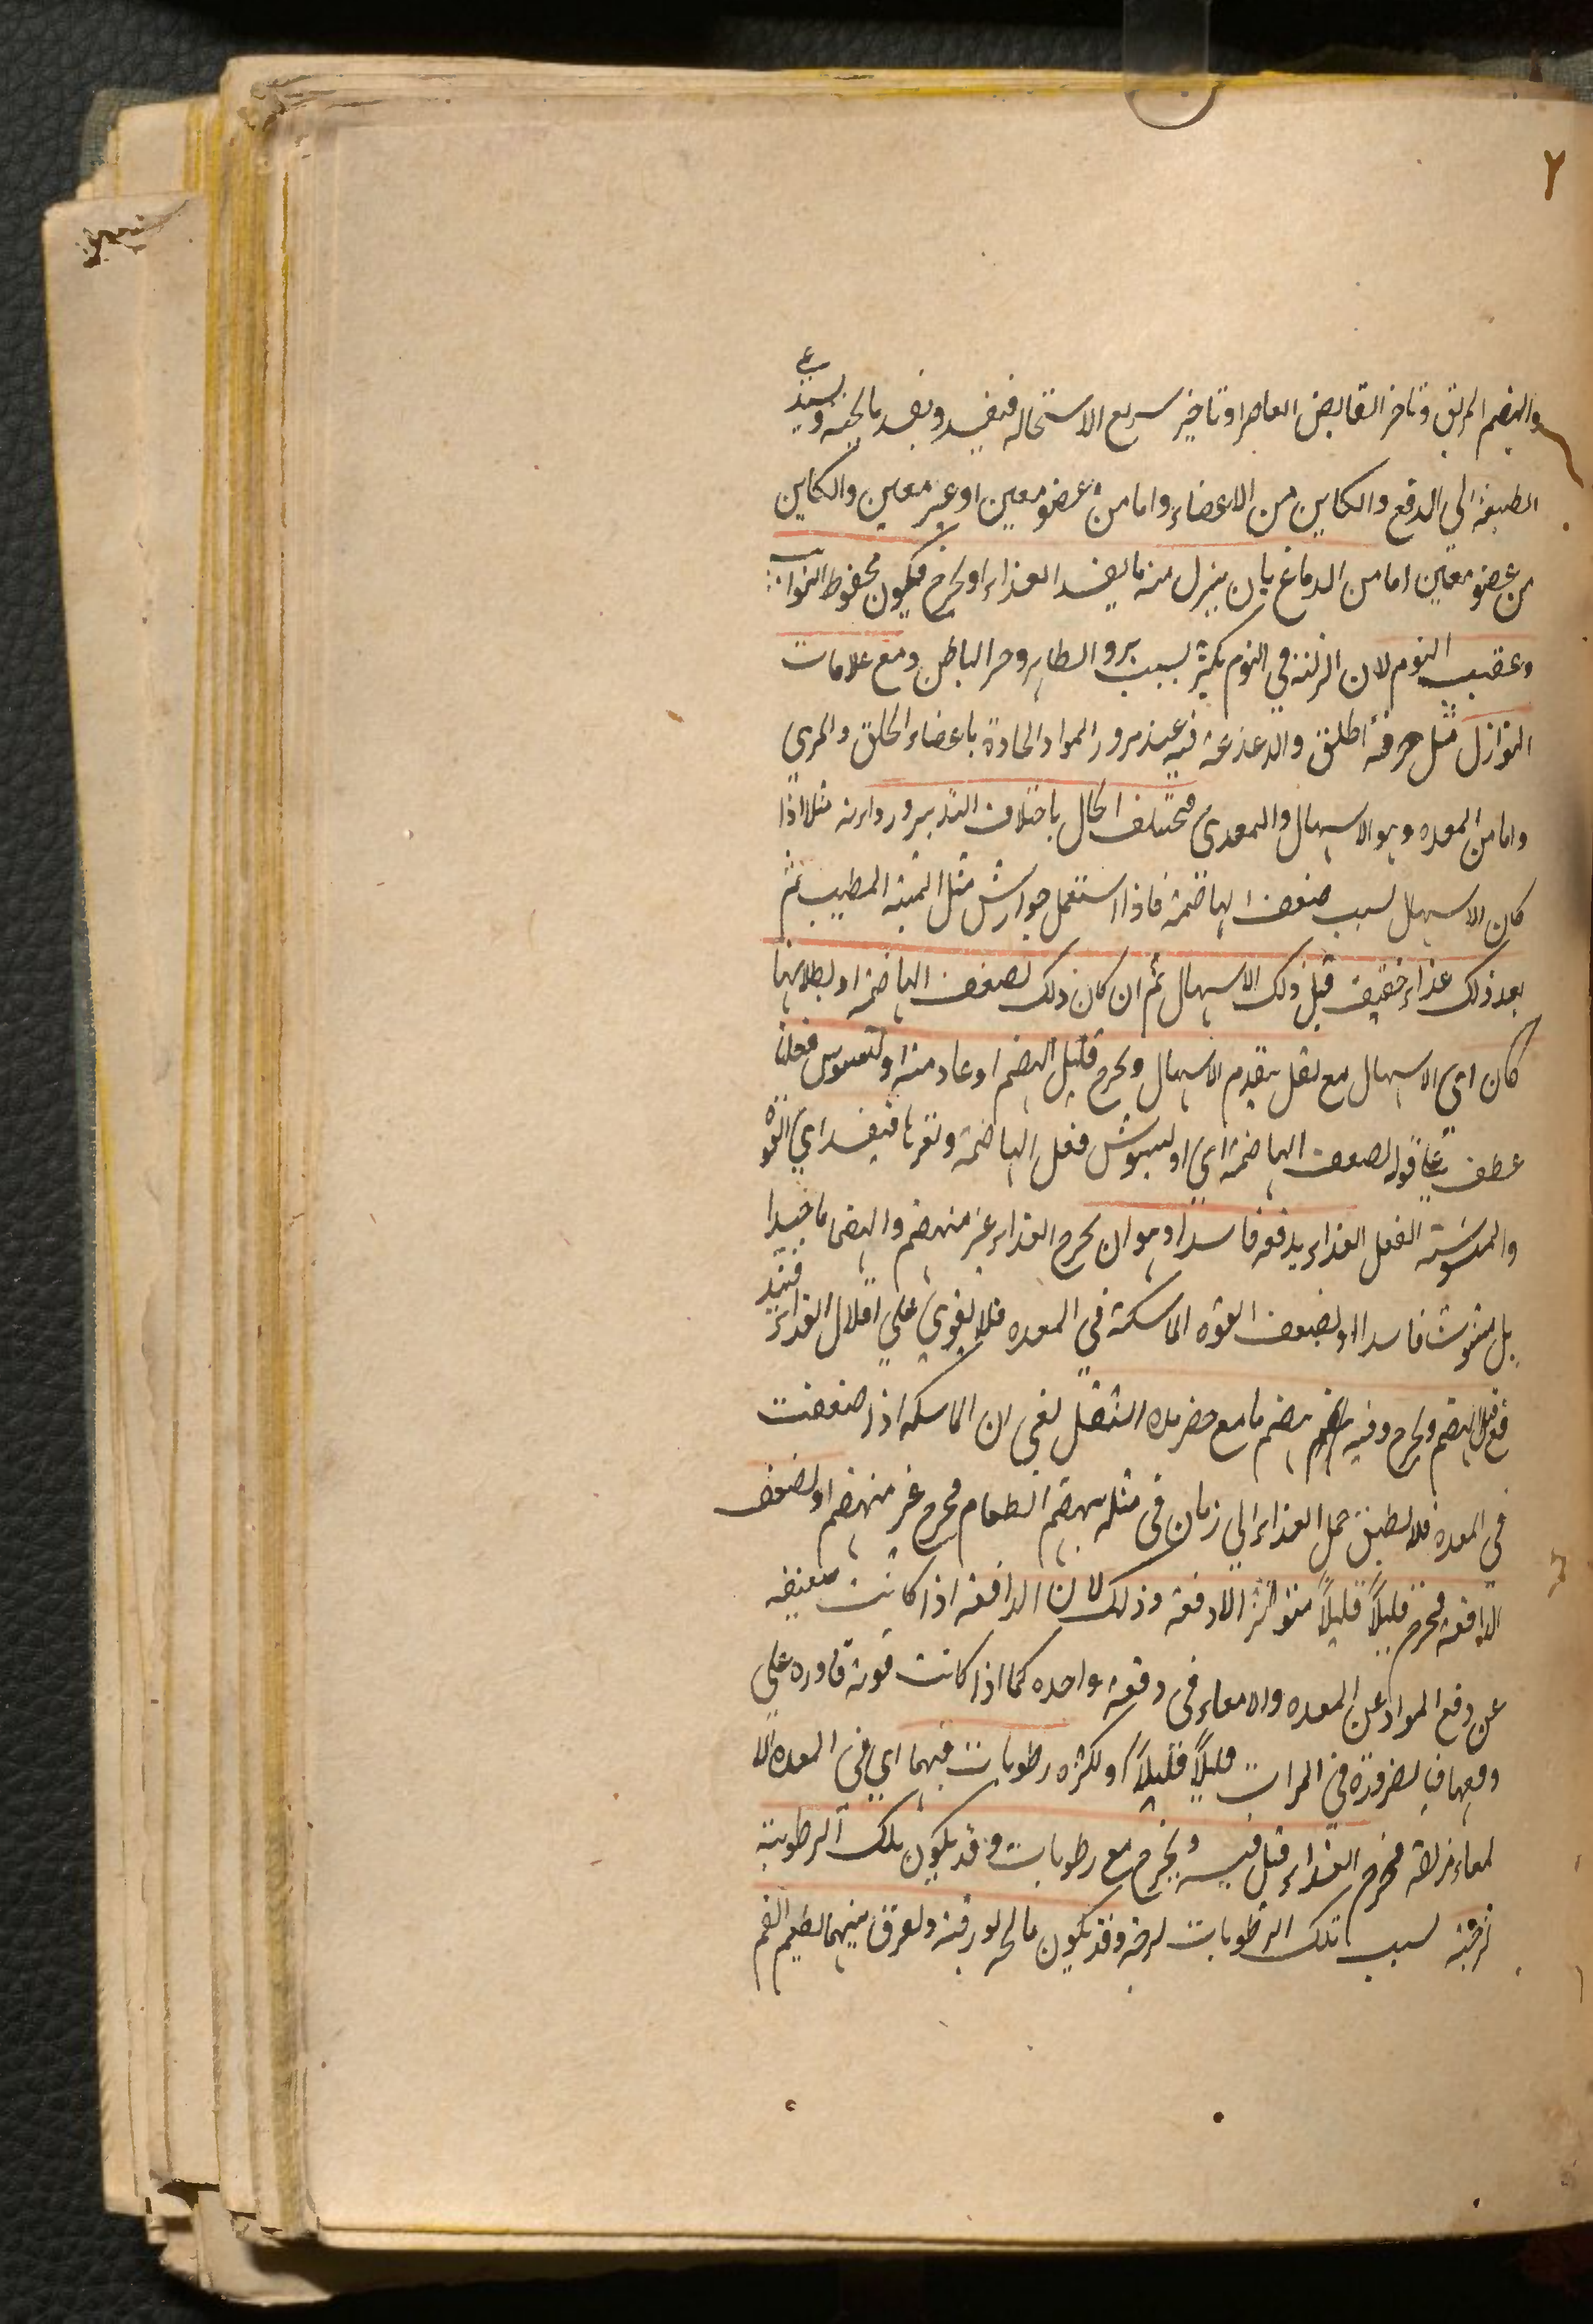 ٢
والهضم المزلق وتاخر القابض العاصر او تاخير سريع الاستحاله فيفسد ويفسد ما يجيئه ويستدعي
الطبيعة الي الدفع والكاين من الاعضاء واما من عضو معين او غير معين والكاين
من عضو معين اما من الدماغ بان ينزل منه ما يفسد الغذاء او يخرج فيكون محفوظ النوايب
وعقيب النوم لان النزلة في النوم يكثر لسبب برد الظاهر وحر الباطن ومع علامات
النوازل مثل حرقة الحلق والدغدغة فيه عند مرور المواد الحادة باعضاء الحلق والمري
واما من المعده وهو الاسهال المعدي فيختلف الحال باختلاف التدبير ورداءته مثلا اذا
كان الاسهال لسبب ضعف الهاضمة فاذا استعمل جوارش مثل الميبه المطيب ثم
بعد ذلك غذاء خفيف قبل ذلك الاسهال ثم ان كان ذلك لضعف الهاضمة او بطلانها
كان اي الاسهال مع ثقل يتقدم الاسهال ويخرج قليل الهضم او عادمته او لتشوش فعلها
عطف علي قوله لضعف الهاضمة اي او لتشوش فعل الهاضمة وتغيرها فيفسد اي القوة
والمشوشة الفعل الغذاء يدفعه فاسدا وهو ان يخرج الغذاء غير منهضم والهضم ما جيدا
بل مشوش فاسدا او لضعف القوه الماسكة في المعده فلا يقوي علي اقلال الغذاء فيند
فع قبل الهضم ويخرج وفيه هضم ما مع حضر هذه الثقل لغي ان الماسكه اذا ضعفت
في المعده فلا يطيق حمل الغذاء الي زمان في مثله ينهضم الطعام فيخرج غير منهضم او لضعف
الدافعه فيخرج قليلاً قليلاً متواتر الا دفعة وذلك لان الدافعه اذا كانت ضعيفه
عن دفع المواد عن المعده والامعاء في دفعة واحده كما اذا كانت قوية قادره علي
دفعها فبالضرورة في المرات قليلاً قليلاً او لكثره رطوبات فيهما اي في المعده والا
لمعاء مزلقة فيخرج الغذاء قبل فيه ويخرج مع رطوبات وقد يكون تلك الرطوبة
لزجة لسبب تلك الرطوبات لزجة وقد يكون مالحه بورقية ويفرق بينهما بطعم الفم